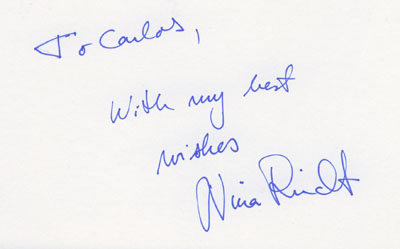 To Carlos,
With my best
wishes
Nina Rindt